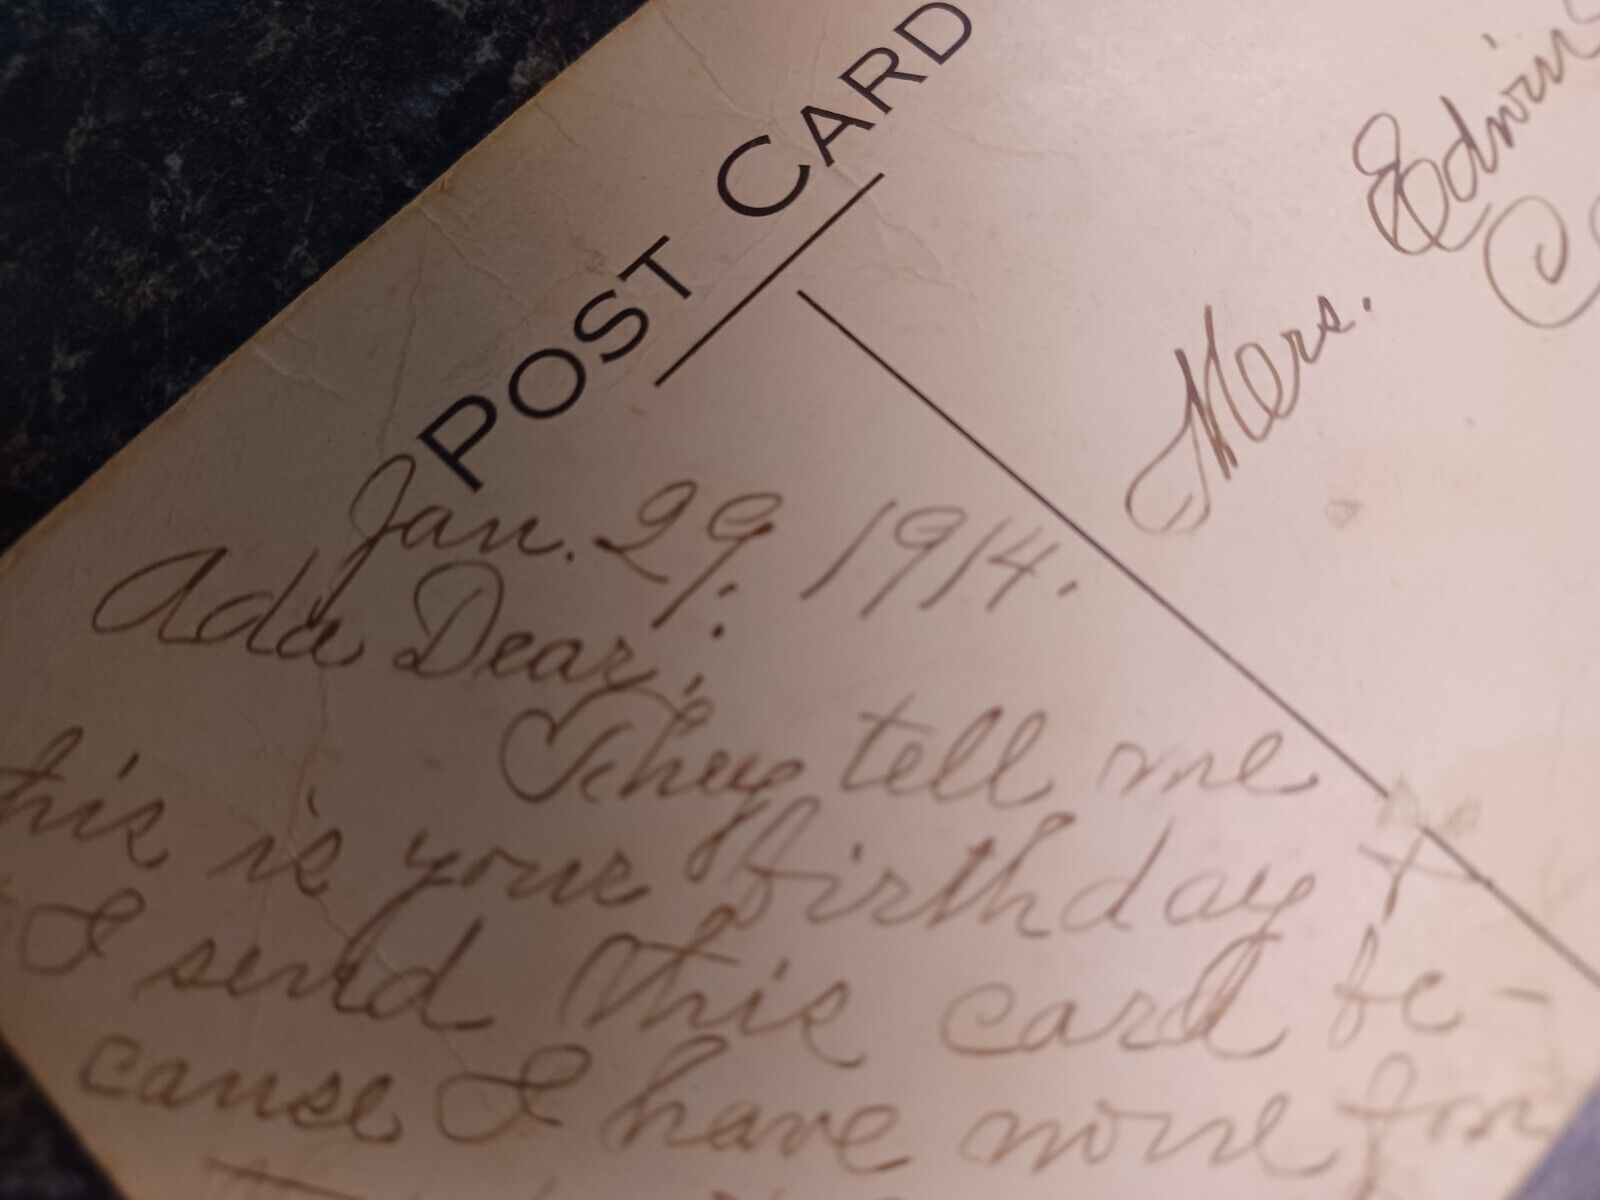 POST CARD
Jan. 29, 1914.
Ada Dear;
They tell me
this is your birthday +
I send this card be-
cause I have none for
Mrs. Edwin